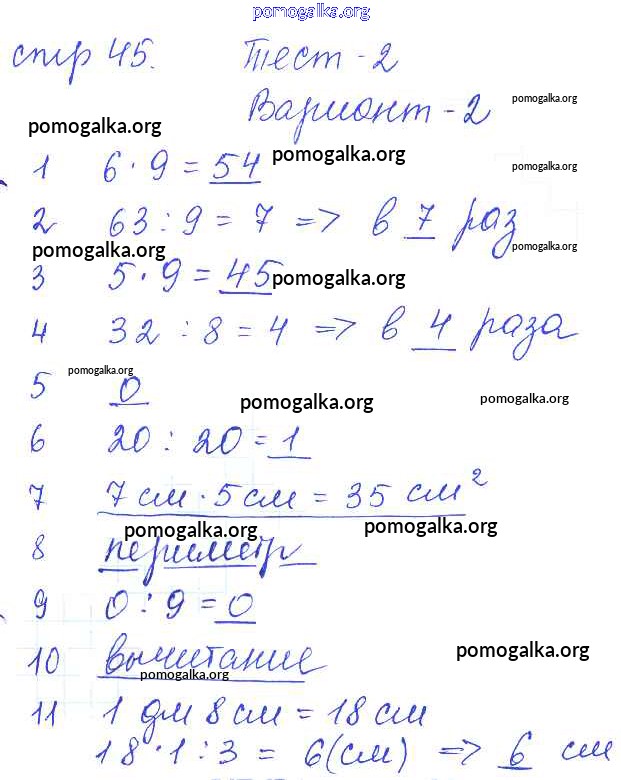 pomogalka.org
стр 45. Тест - 2
Вариант - 2
pomogalka.org
pomogalka.org
pomogalka.org
pomogalka.org
1 6 · 9 = 54
2 63 : 9 = 7 => в 7 раз
pomogalka.org
pomogalka.org
pomogalka.org
3 5 · 9 = 45
4 32 : 8 = 4 => в 4 раза
pomogalka.org
5 0
pomogalka.org
pomogalka.org
6 20 : 20 = 1
7 7 см · 5 см = 35 см²
pomogalka.org
pomogalka.org
8 периметр
9 0 : 9 = 0
10 вычитание
pomogalka.org
pomogalka.org
11 1 дм 8 см = 18 см
18 · 1 : 3 = 6 (см) => 6 см